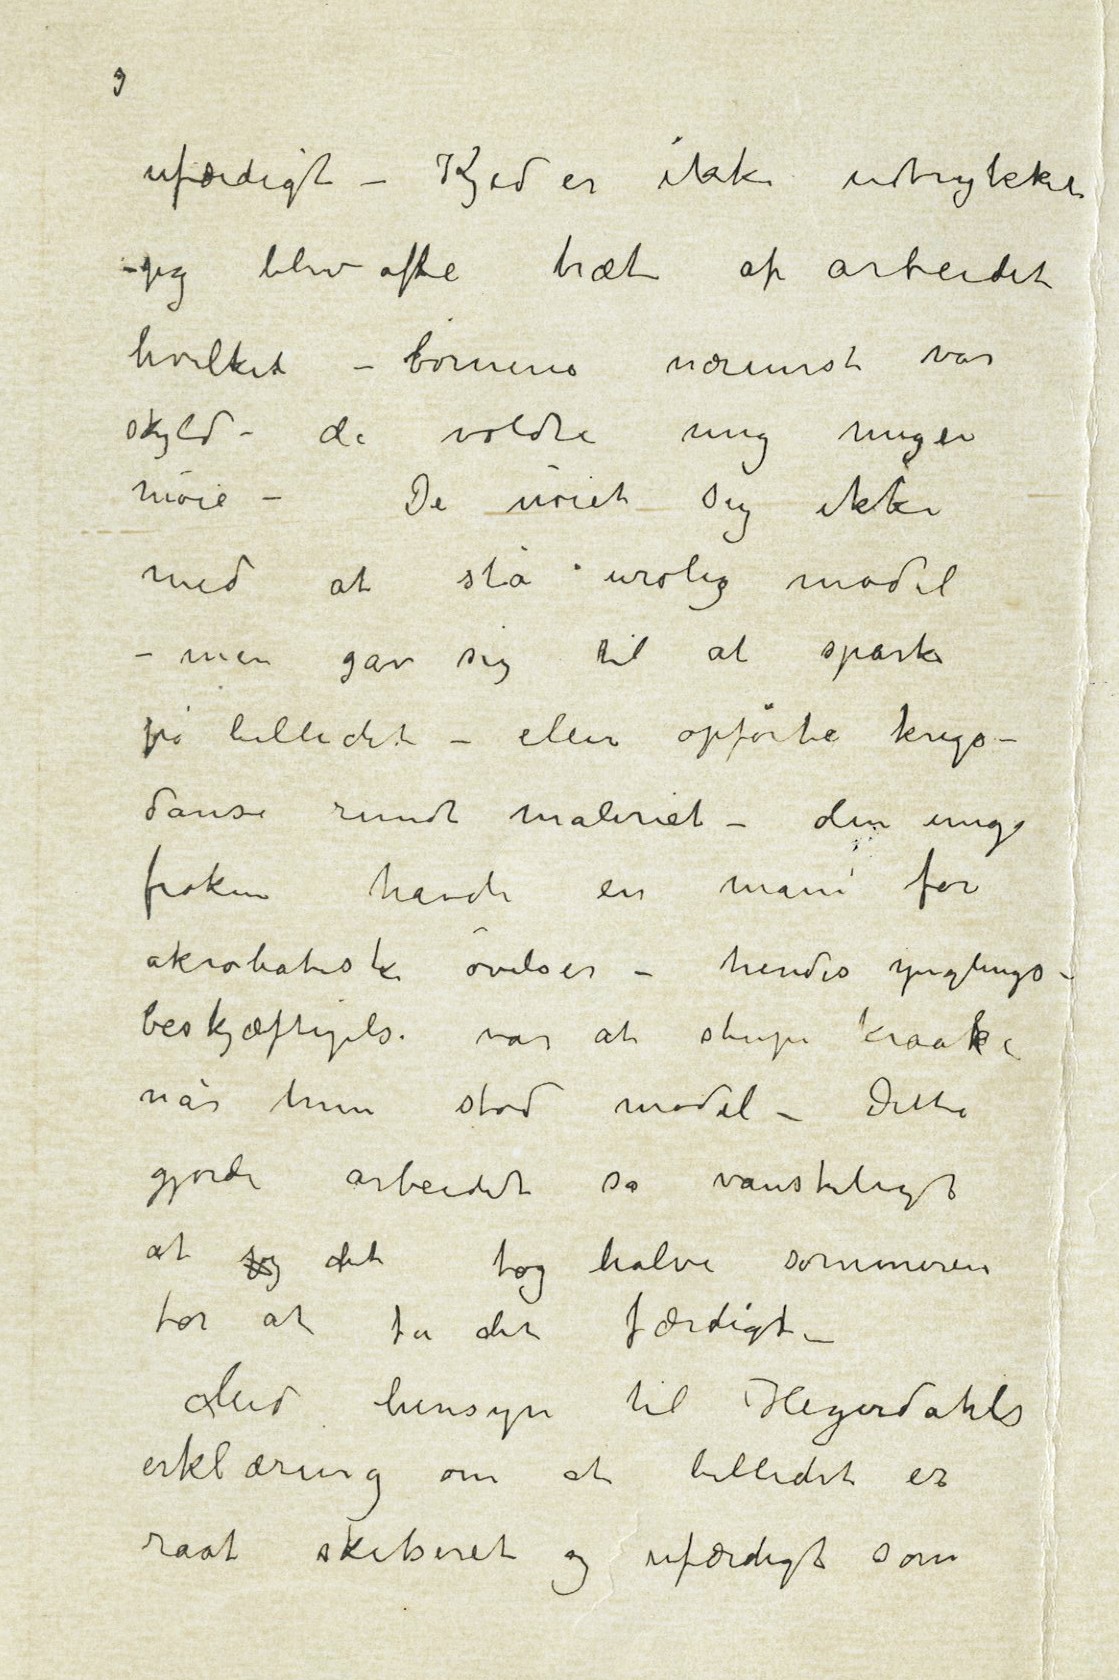 9
ufærdigt – Kjed er ikke udtrykket
– jeg blev ofte træt af arbeidet
hvilket – börnene nærmest var
skyld – de voldte mig megen
möie – De nöiet sig ikke
med at stå urolig model
– men gav sig til at sparke
på billedet – eller opförte krigs–
danse rundt maleriet – den unge
frøken havde en mani for
akrobatiske övelser – hendes ynglings–
beskjæftigelse var at stupe kraake
når hun stod model – Dette
gjorde arbeidet så vanskeligt
at jeg det tog halve sommeren
for at få det færdigt –
Med hensyn til Hejerdahls
erklæring om at billedet er
raat skitseret og ufærdigt som